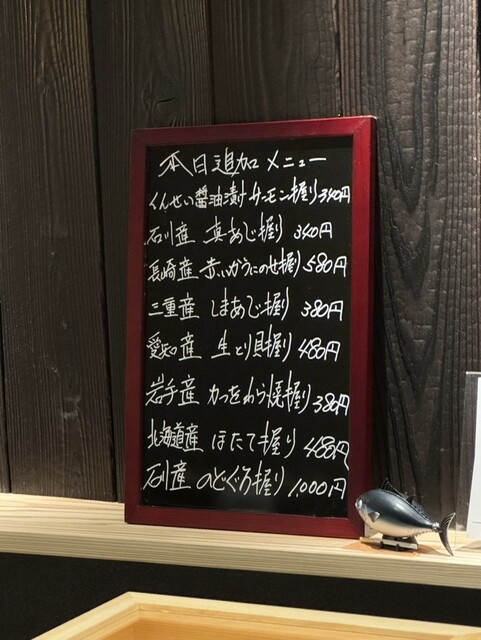 本日追加メニュー
くんせい醤油漬けサーモン握り340円
石川産 真あじ握り 340円
長崎産 赤いかうにのせ握り580円
三重産 しまあじ握り 380円
愛知産 生とり貝握り 480円
岩手産 かつをわら焼握り380円
北海道産 ほたて握り 480円
石川産 のどぐろ握り 1,000円